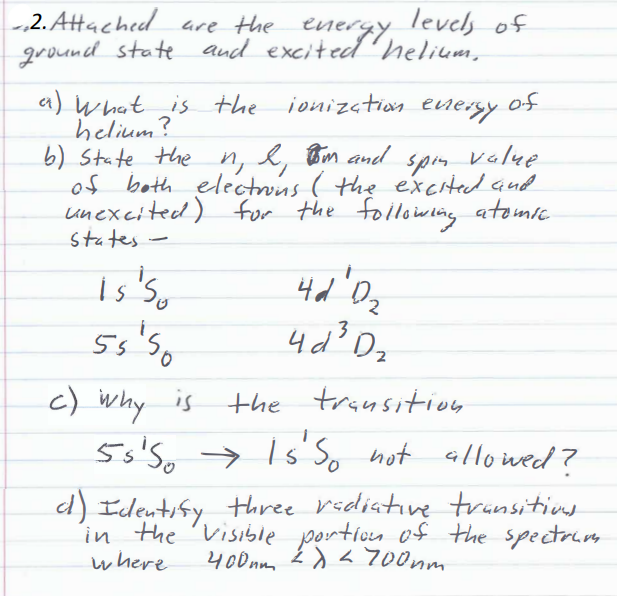 2. Attached are the energy levels of
ground state and excited helium.
a) What is the ionization energy of
helium?
b) State the n, l, m and spin value
of both electrons (the excited and
unexcited) for the following atomic
states —
1s ¹S₀ 4d ¹D₂
5s ¹S₀ 4d ³D₂
c) Why is the transition
5s ¹S₀ → 1s ¹S₀ not allowed?
d) Identify three radiative transitions
in the visible portion of the spectrum
where 400nm < λ < 700nm